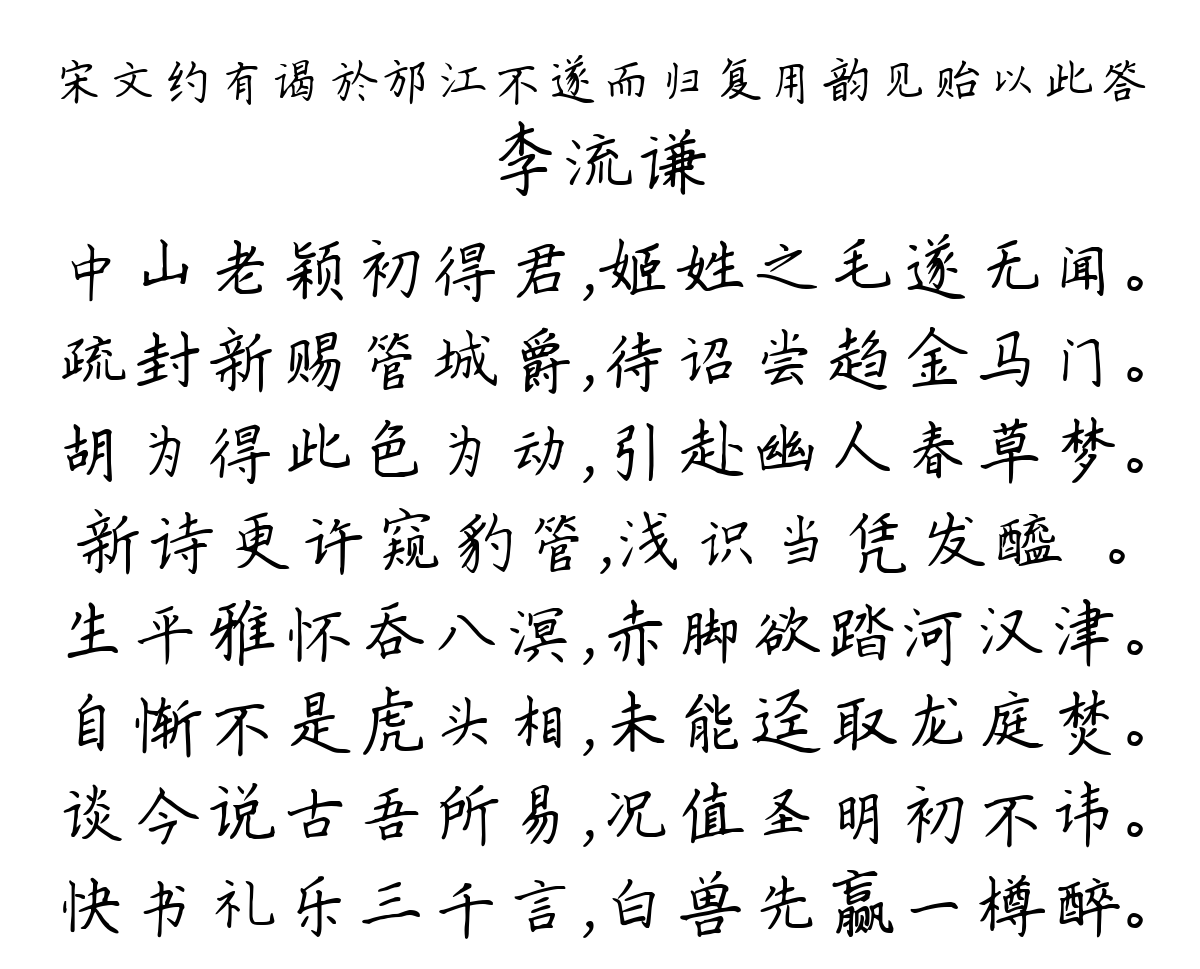 宋文约有谒於邡江不遂而归复用韵见贻以此答
李流谦
中山老颖初得君,姬姓之毛遂无闻。
疏封新赐管城爵,待诏尝趋金马门。
胡为得此色为动,引赴幽人春草梦。
新诗更许窥豹管,浅识当凭发醯 。
生平雅怀吞八溟,赤脚欲踏河汉津。
自惭不是虎头相,未能迳取龙庭焚。
谈今说古吾所易,况值圣明初不讳。
快书礼乐三千言,白兽先赢一樽醉。